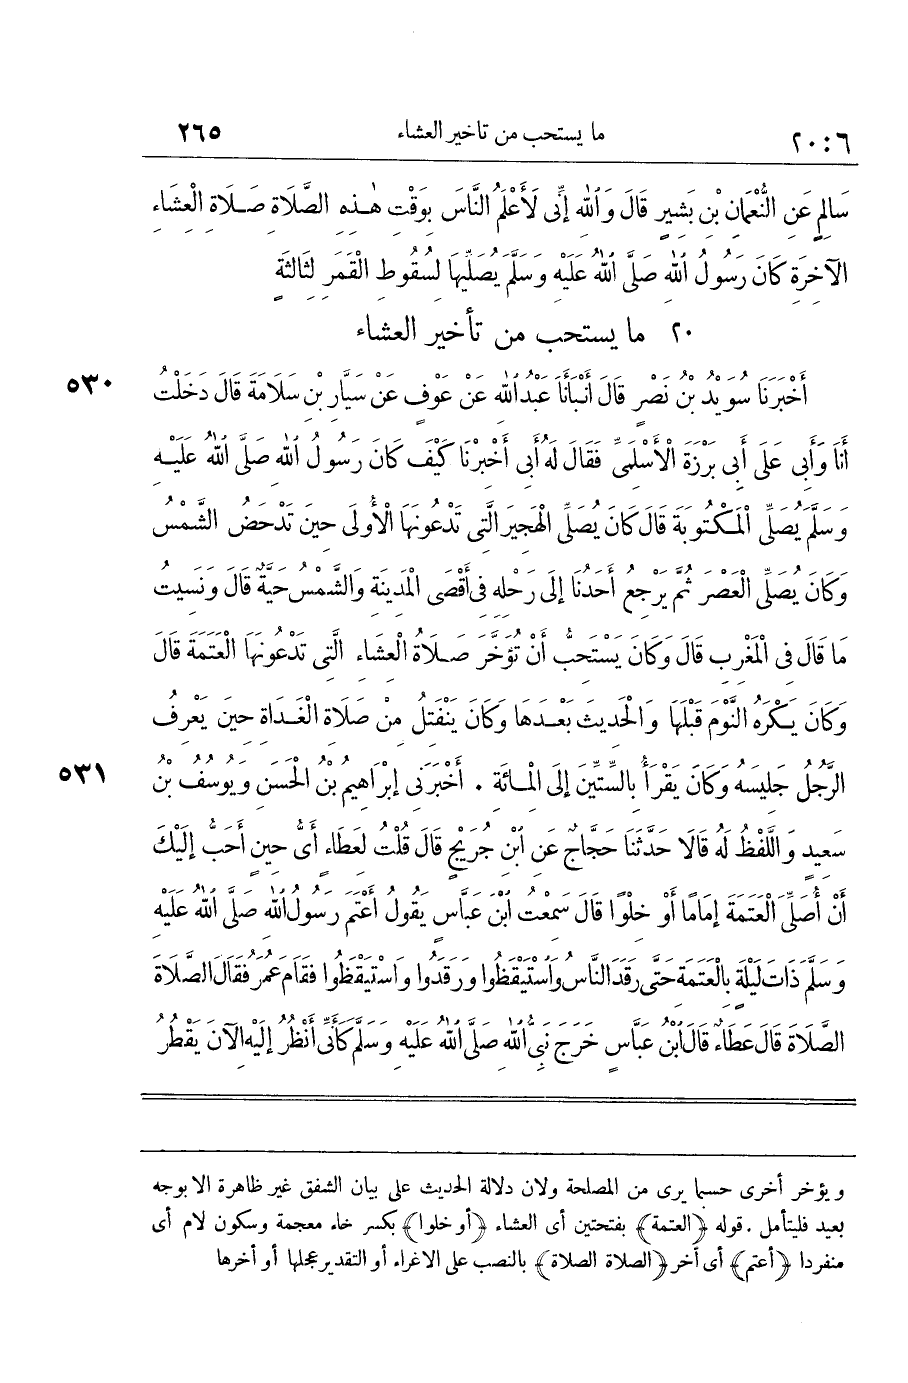 ٢٠:٦ ما يستحب من تاخير العشاء ٢٦٥
سَالِمٍ عَنِ النُّعْمَانِ بْنِ بَشِيرٍ قَالَ وَاللهِ إِنِّى لَأَعْلَمُ النَّاسِ بِوَقْتِ هٰذِهِ الصَّلَاةِ صَلَاةِ الْعِشَاءِ
الآخِرَةِ كَانَ رَسُولُ اللهِ صَلَّى اللهُ عَلَيْهِ وَسَلَّمَ يُصَلِّيهَا لِسُقُوطِ الْقَمَرِ لِثَالِثَةٍ
٢٠ ما يستحب من تأخير العشاء
أَخْبَرَنَا سُوَيْدُ بْنُ نَصْرٍ قَالَ أَنْبَأَنَا عَبْدُ اللهِ عَنْ عَوْفٍ عَنْ سَيَّارِ بْنِ سَلَامَةَ قَالَ دَخَلْتُ ٥٣٠
أَنَا وَأَبِى عَلَى أَبِى بَرْزَةَ الْأَسْلَمِىِّ فَقَالَ لَهُ أَبِى أَخْبِرْنَا كَيْفَ كَانَ رَسُولُ اللهِ صَلَّى اللهُ عَلَيْهِ
وَسَلَّمَ يُصَلِّى الْمَكْتُوبَةَ قَالَ كَانَ يُصَلِّى الْهَجِيرَ الَّتِى تَدْعُونَهَا الْأُولَى حِينَ تَدْحَضُ الشَّمْسُ
وَكَانَ يُصَلِّى الْعَصْرَ ثُمَّ يَرْجِعُ أَحَدُنَا إِلَى رَحْلِهِ فِى أَقْصَى الْمَدِينَةِ وَالشَّمْسُ حَيَّةٌ قَالَ وَنَسِيتُ
مَا قَالَ فِى الْمَغْرِبِ قَالَ وَكَانَ يَسْتَحِبُّ أَنْ تُؤَخَّرَ صَلَاةُ الْعِشَاءِ الَّتِى تَدْعُونَهَا الْعَتَمَةَ قَالَ
وَكَانَ يَكْرَهُ النَّوْمَ قَبْلَهَا وَالْحَدِيثَ بَعْدَهَا وَكَانَ يَنْفَتِلُ مِنْ صَلَاةِ الْغَدَاةِ حِينَ يَعْرِفُ
الرَّجُلُ جَلِيسَهُ وَكَانَ يَقْرَأُ بِالسِّتِّينَ إِلَى الْمِائَةِ . أَخْبَرَنِى إِبْرَاهِيمُ بْنُ الْحَسَنِ وَيُوسُفُ بْنُ ٥٣١
سَعِيدٍ وَاللَّفْظُ لَهُ قَالَا حَدَّثَنَا حَجَّاجٌ عَنِ ابْنِ جُرَيْجٍ قَالَ قُلْتُ لِعَطَاءٍ أَىُّ حِينٍ أَحَبُّ إِلَيْكَ
أَنْ أُصَلِّىَ الْعَتَمَةَ إِمَامًا أَوْ خِلْوًا قَالَ سَمِعْتُ ابْنَ عَبَّاسٍ يَقُولُ أَعْتَمَ رَسُولُ اللهِ صَلَّى اللهُ عَلَيْهِ
وَسَلَّمَ ذَاتَ لَيْلَةٍ بِالْعَتَمَةِ حَتَّى رَقَدَ النَّاسُ وَاسْتَيْقَظُوا وَرَقَدُوا وَاسْتَيْقَظُوا فَقَامَ عُمَرُ فَقَالَ الصَّلَاةَ
الصَّلَاةَ قَالَ عَطَاءٌ قَالَ ابْنُ عَبَّاسٍ خَرَجَ نَبِىُّ اللهِ صَلَّى اللهُ عَلَيْهِ وَسَلَّمَ كَأَنِّى أَنْظُرُ إِلَيْهِ الآنَ يَقْطُرُ
ويؤخر أخرى حسبما يرى من المصلحة ولان دلالة الحديث على بيان الشفق غير ظاهرة الا بوجه
بعيد فليتأمل . قوله ﴿العتمة﴾ بفتحتين أى العشاء ﴿أو خلوا﴾ بكسر خاء معجمة وسكون لام أى
منفردا ﴿أعتم﴾ أى أخر ﴿الصلاة الصلاة﴾ بالنصب على الاغراء أو التقدير عجلها أو أخرها